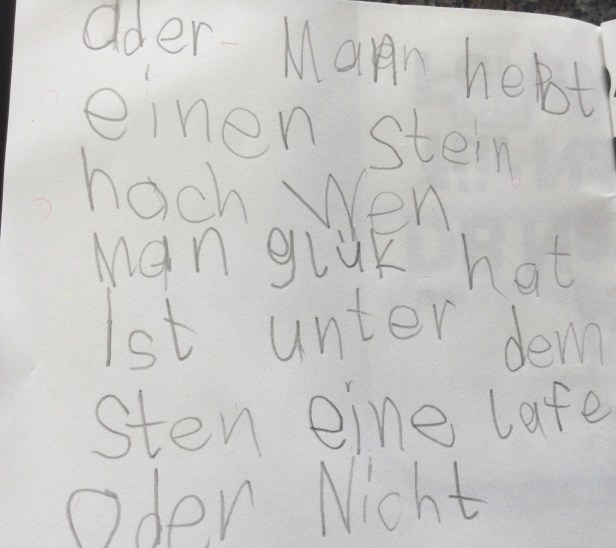 dder Mann hebt
einen stein
hoch Wen
Man glük hat
Ist unter dem
Sten eine lafe
Oder Nicht